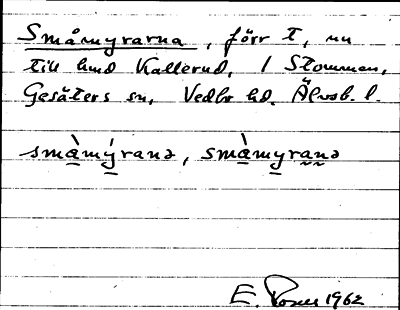 Småmyrarna, förr t, nu
till hmd Kallerud, 1 Stommen,
Gesäters sn, Vedbo hd. Älvsb. l.
smὰmýranə, smὰmyranə
E. 1962